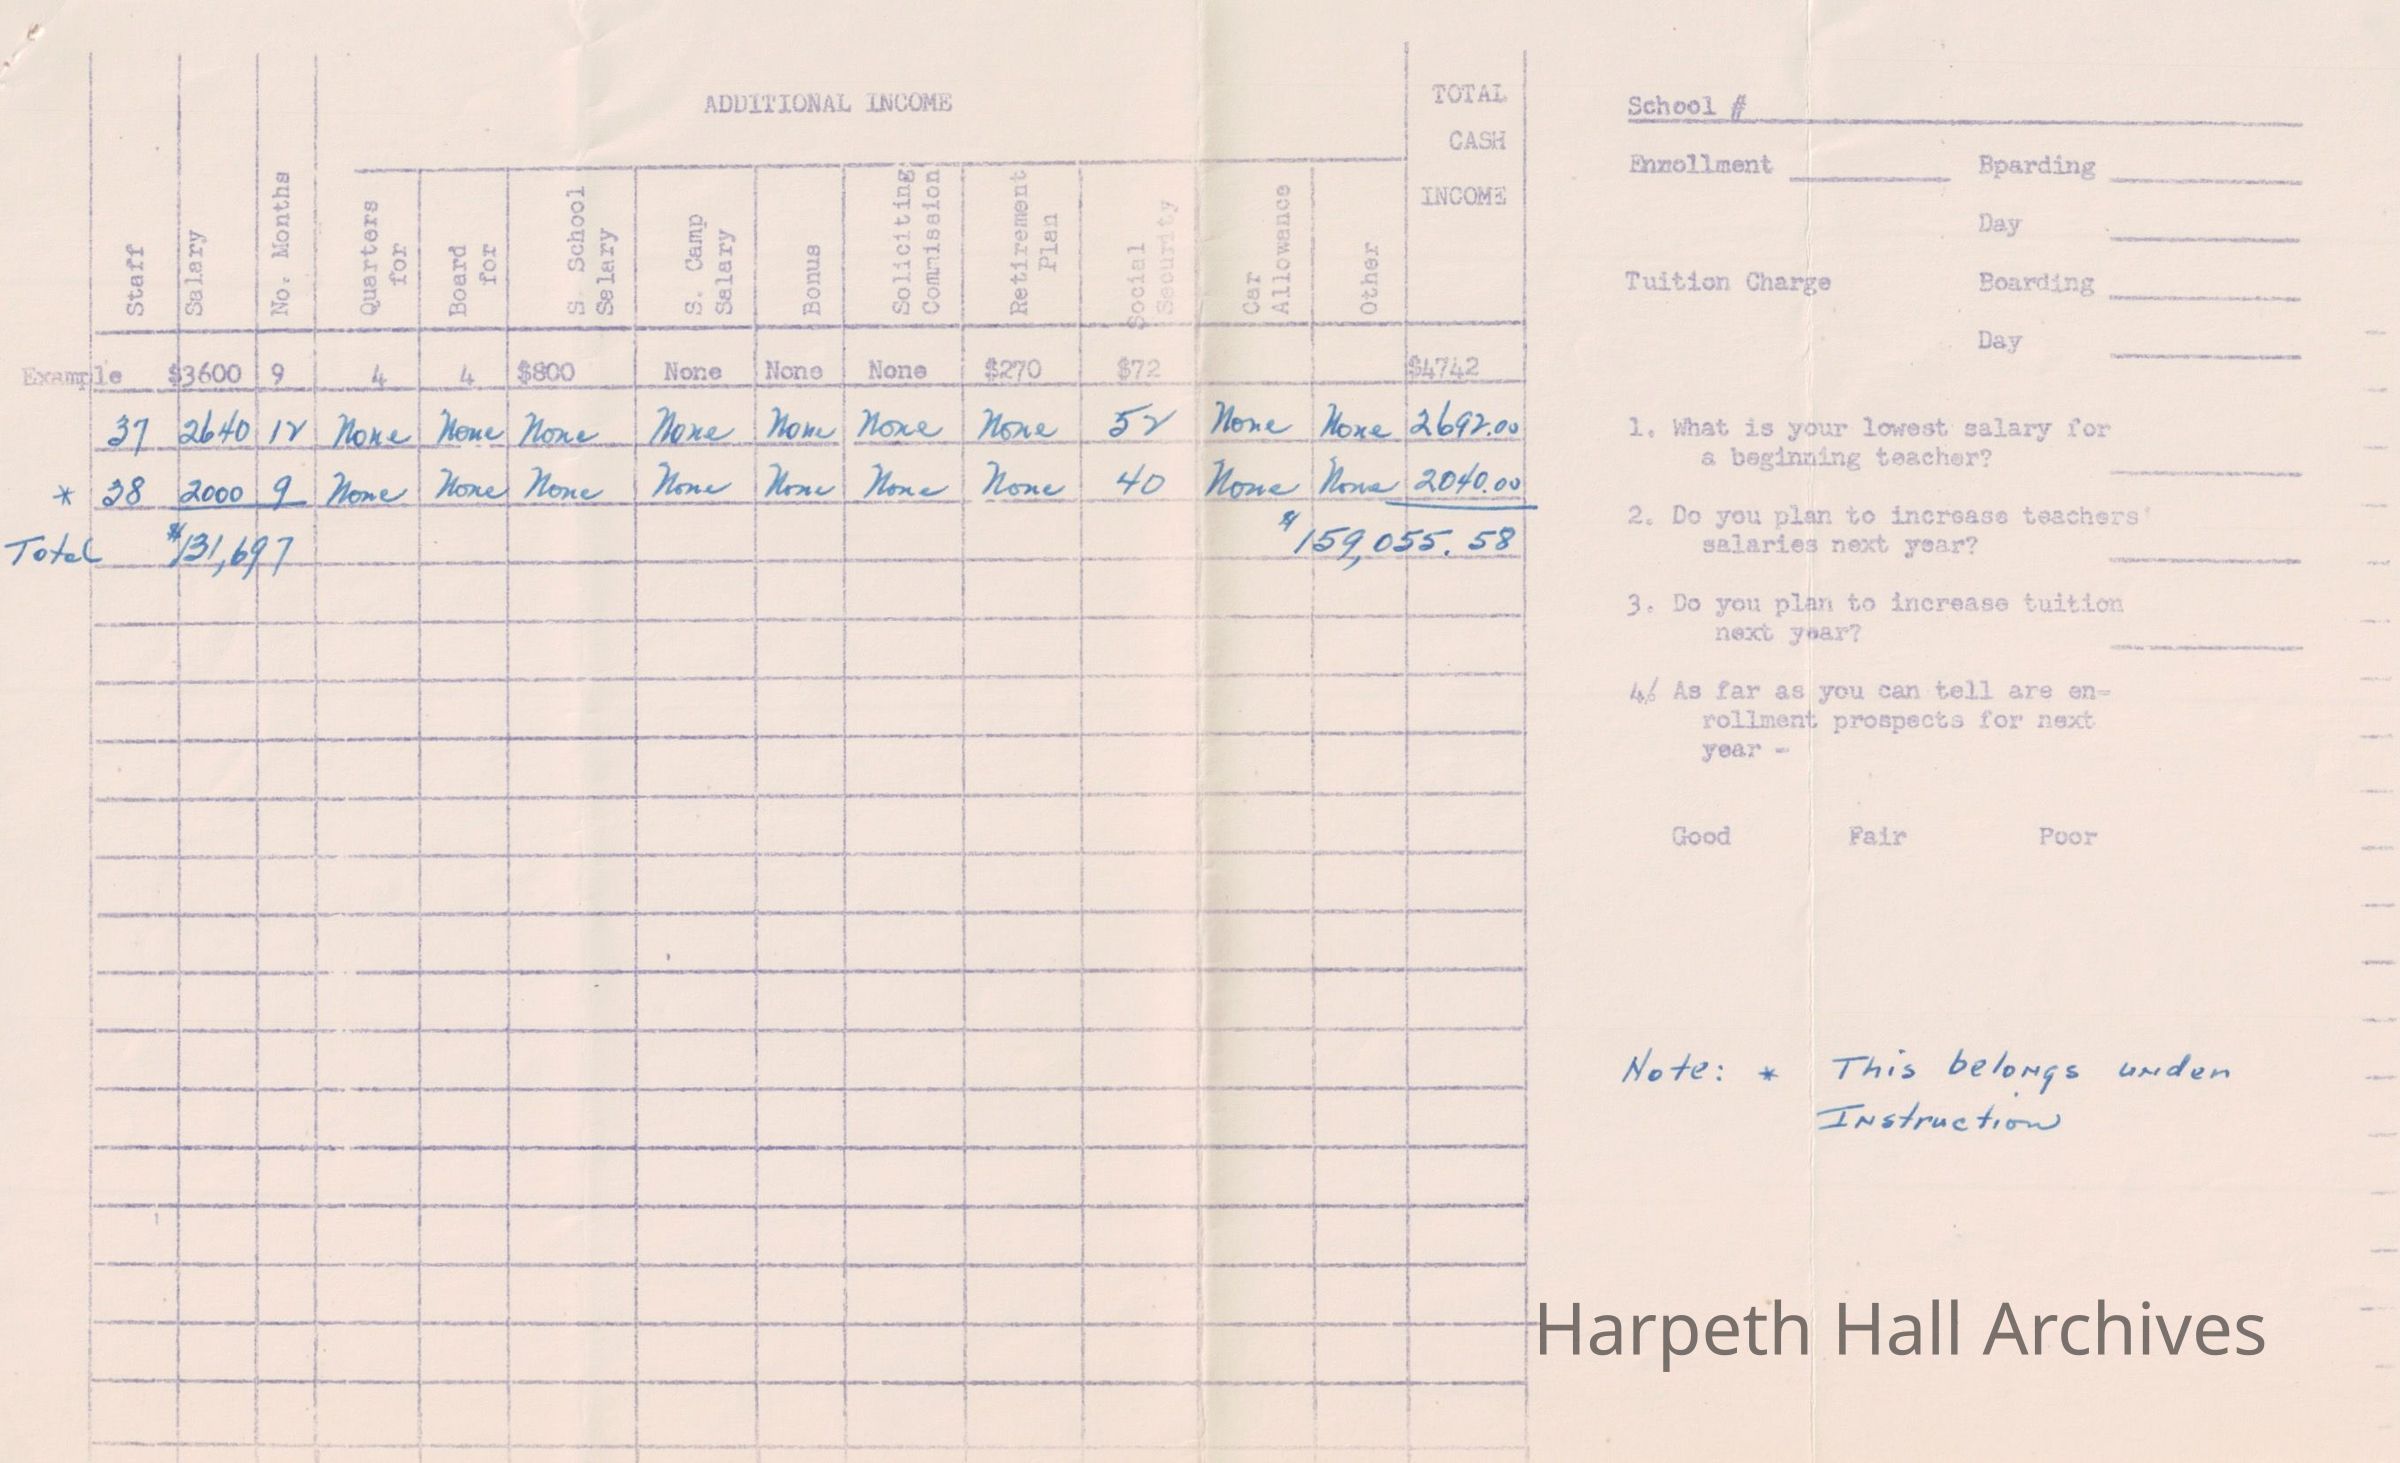 ADDITIONAL INCOME
TOTAL
CASH
INCOME
Staff
Salary
No. Months
Quarters
for
Board
for
S. School
Selary
S. Camp
Salary
Bonus
Soliciting
Commission
Retirement
Plan
Social
Security
Car
Allowance
Other
Example $3600 9 4 4 $800 None None None $270 $72 $4742
37 2640 12 None None None None None None None 52 None None 2692.00
* 38 2000 9 None None None None None None None 40 None None 2040.00
Total $131,697 $159,055.58
School #
Enrollment Bparding
Day
Tuition Charge Boarding
Day
1. What is your lowest salary for
a beginning teacher?
2. Do you plan to increase teachers'
salaries next year?
3. Do you plan to increase tuition
next year?
4. As far as you can tell are en-
rollment prospects for next
year -
Good Fair Poor
Note: * This belongs under
Instruction
Harpeth Hall Archives